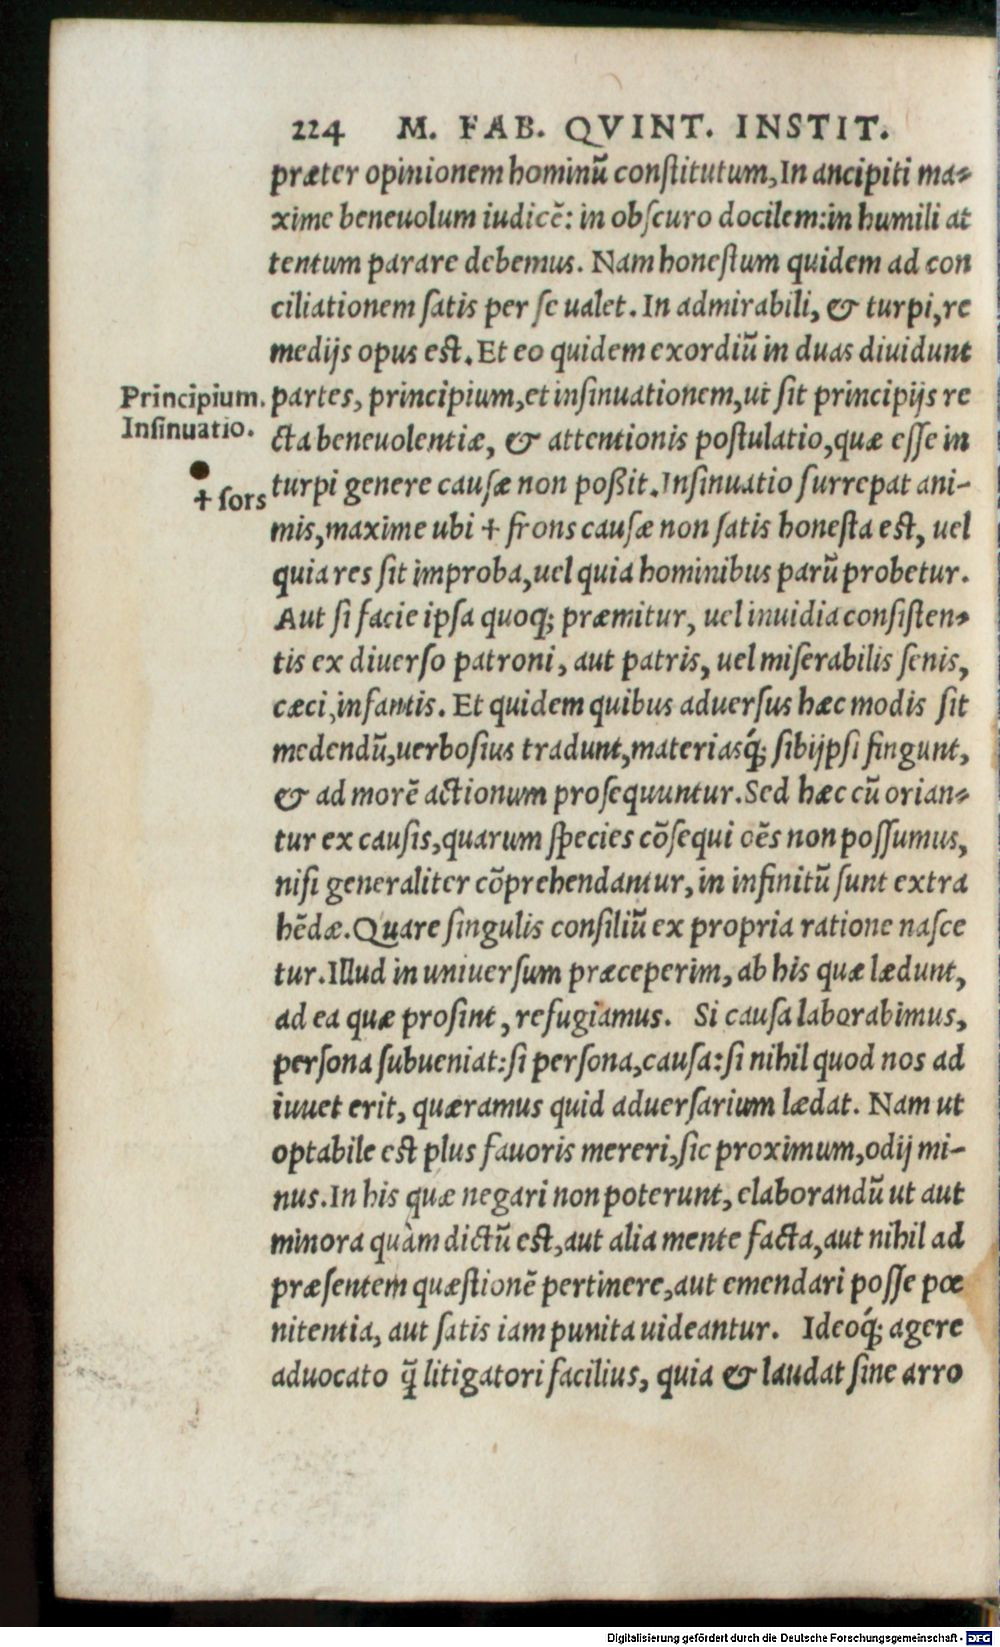 224 M. FAB. QVINT. INSTIT.
præter opinionem hominũ constitutum, In ancipiti ma-
xime beneuolum iudicẽ: in obscuro docilem: in humili at
tentum parare debemus. Nam honestum quidem ad con
ciliationem satis per se ualet. In admirabili, & turpi, re
medijs opus est. Et eo quidem exordiũ in duas diuidunt
Principium.
partes, principium, et insinuationem, ut sit principijs re
Insinuatio.
cta beneuolentiæ, & attentionis postulatio, quæ esse in
turpi genere causæ non poßit. Insinuatio surrepat ani-
+ sors
mis, maxime ubi + frons causæ non satis honesta est, uel
quia res sit improba, uel quia hominibus parũ probetur.
Aut si facie ipsa quoq; præmitur, uel inuidia consisten-
tis ex diuerso patroni, aut patris, uel miserabilis senis,
cæci, infantis. Et quidem quibus aduersus hæc modis sit
medendũ, uerbosius tradunt, materiasq́; sibijpsi fingunt,
& ad morẽ actionum prosequuntur. Sed hæc cũ orian-
tur ex causis, quarum species cõsequi oẽs non possumus,
nisi generaliter cõprehendantur, in infinitũ sunt extra
hẽdæ. Quare singulis consiliũ ex propria ratione nasce
tur. Illud in uniuersum præceperim, ab his quæ lædunt,
ad ea quæ prosint, refugiamus. Si causa laborabimus,
persona subueniat: si persona, causa: si nihil quod nos ad
iuuet erit, quæramus quid aduersarium lædat. Nam ut
optabile est plus fauoris mereri, sic proximum, odij mi-
nus. In his quæ negari non poterunt, elaborandũ ut aut
minora quàm dictũ est, aut alia mente facta, aut nihil ad
præsentem quæstionẽ pertinere, aut emendari posse pœ
nitentia, aut satis iam punita uideantur. Ideoq́; agere
aduocato q̃ litigatori facilius, quia & laudat sine arro
Digitalisierung gefördert durch die Deutsche Forschungsgemeinschaft - DFG